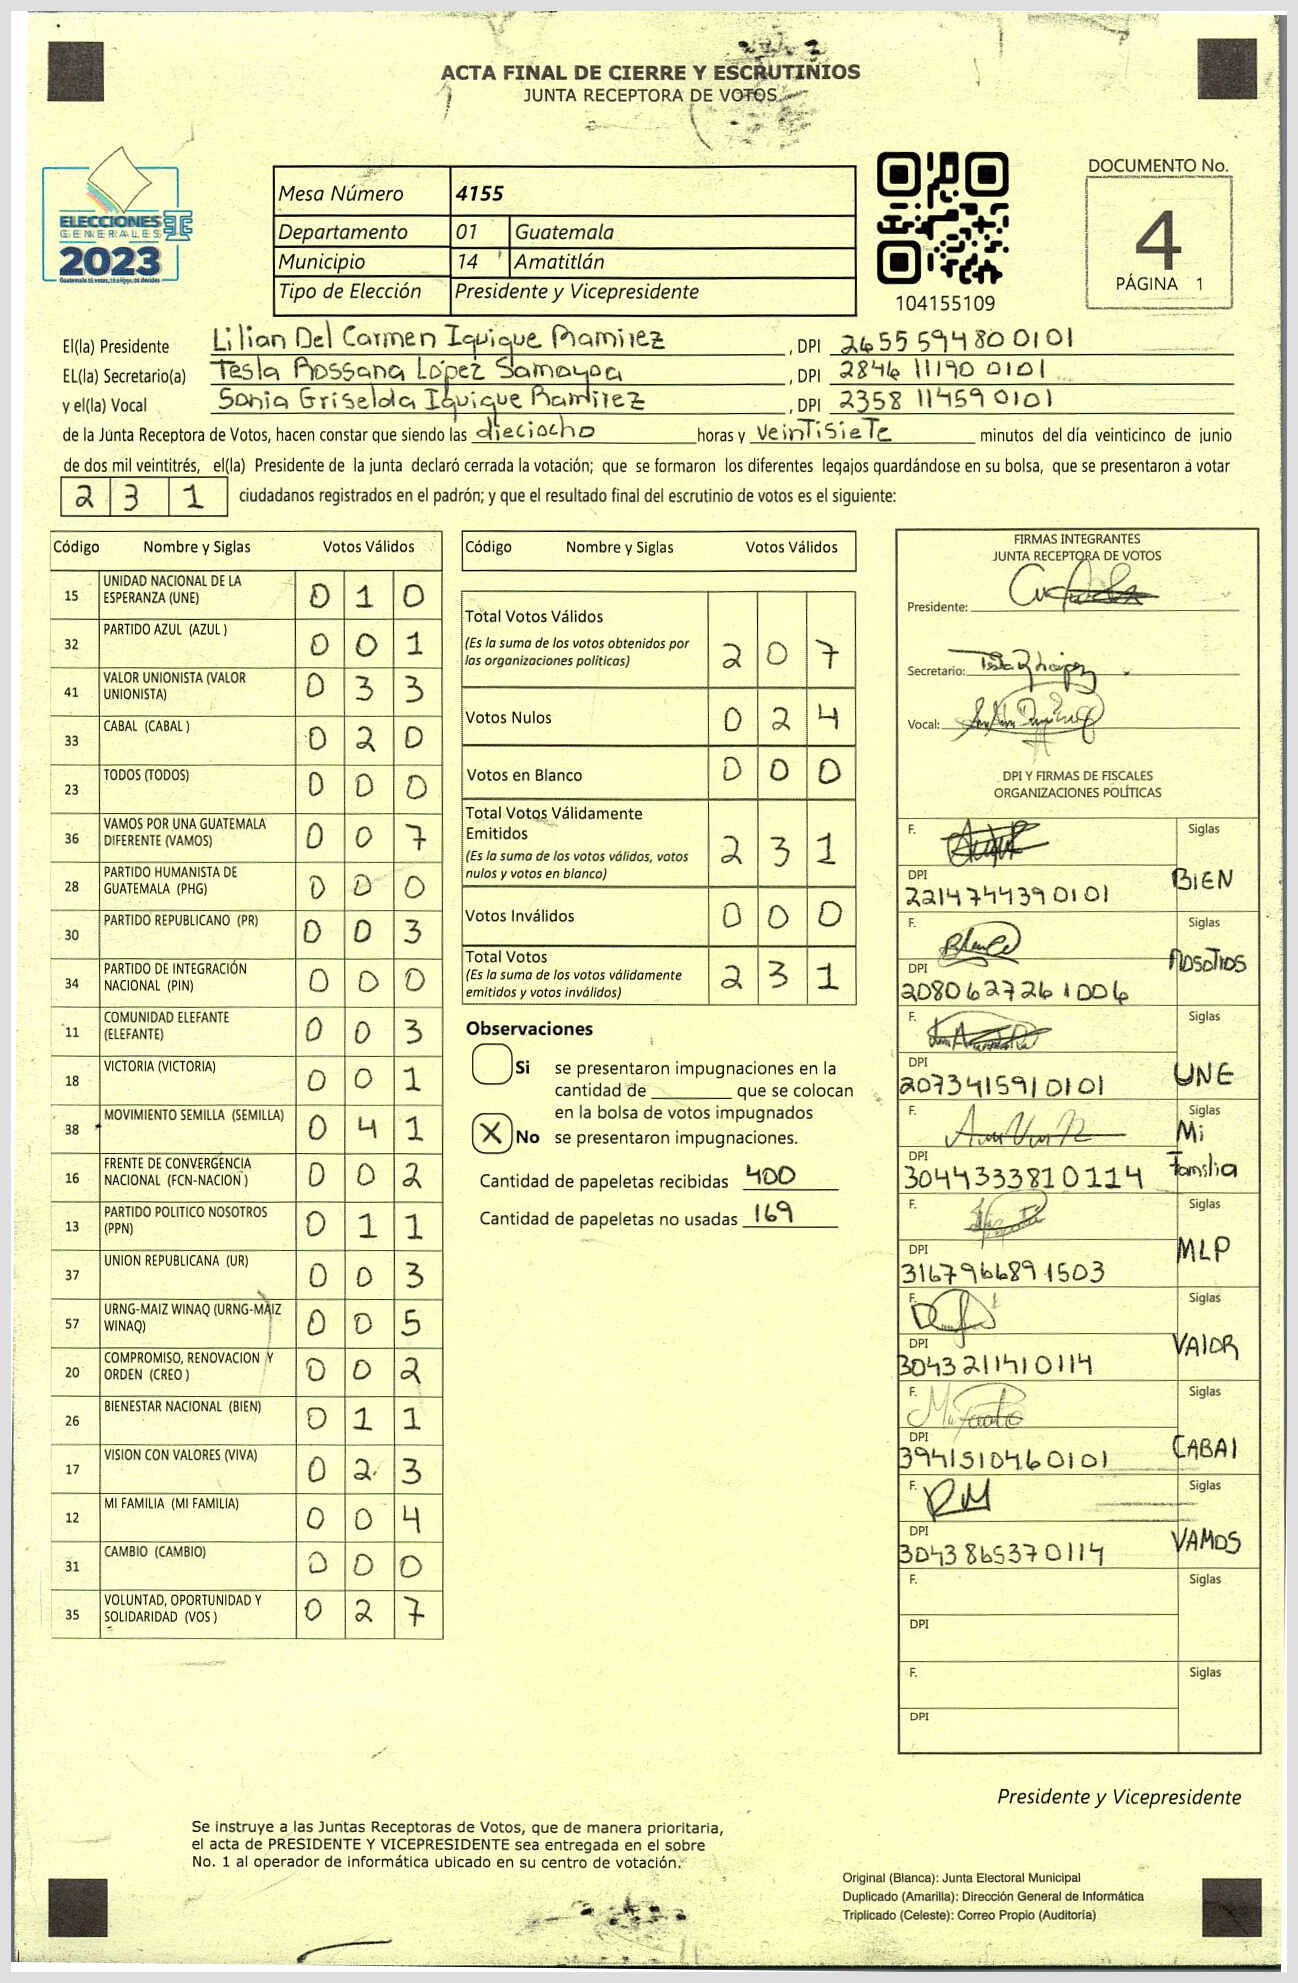 ACTA FINAL DE CIERRE Y ESCRUTINIOS
JUNTA RECEPTORA DE VOTOS
ELECCIONES
GENERALES
2023
Mesa Número 4155
Departamento 01 Guatemala
Municipio 14 Amatitlán
Tipo de Elección Presidente y Vicepresidente
104155109
DOCUMENTO No.
4
PÁGINA 1
El(la) Presidente Lilian Del Carmen Iquique Ramirez , DPI 2655 59480 0101
EL(la) Secretario(a) Tesla Rossana López Samayoa , DPI 2846 11190 0101
y el(la) Vocal Sonia Griselda Iquique Ramirez , DPI 2358 11459 0101
de la Junta Receptora de Votos, hacen constar que siendo las dieciocho horas y veintisiete minutos del día veinticinco de junio
de dos mil veintitrés, el(la) Presidente de la junta declaró cerrada la votación; que se formaron los diferentes legajos guardándose en su bolsa, que se presentaron a votar
231 ciudadanos registrados en el padrón; y que el resultado final del escrutinio de votos es el siguiente:
Código Nombre y Siglas Votos Válidos
15 UNIDAD NACIONAL DE LA ESPERANZA (UNE) 0 1 0
32 PARTIDO AZUL (AZUL ) 0 0 1
41 VALOR UNIONISTA (VALOR UNIONISTA) 0 3 3
33 CABAL (CABAL ) 0 2 0
23 TODOS (TODOS) 0 0 0
36 VAMOS POR UNA GUATEMALA DIFERENTE (VAMOS) 0 0 7
28 PARTIDO HUMANISTA DE GUATEMALA (PHG) 0 0 0
30 PARTIDO REPUBLICANO (PR) 0 0 3
34 PARTIDO DE INTEGRACIÓN NACIONAL (PIN) 0 0 0
11 COMUNIDAD ELEFANTE (ELEFANTE) 0 0 3
18 VICTORIA (VICTORIA) 0 0 1
38 MOVIMIENTO SEMILLA (SEMILLA) 0 4 1
16 FRENTE DE CONVERGENCIA NACIONAL (FCN-NACION ) 0 0 2
13 PARTIDO POLITICO NOSOTROS (PPN) 0 1 1
37 UNION REPUBLICANA (UR) 0 0 3
57 URNG-MAIZ WINAQ (URNG-MAIZ WINAQ) 0 0 5
20 COMPROMISO, RENOVACION Y ORDEN (CREO ) 0 0 2
26 BIENESTAR NACIONAL (BIEN) 0 1 1
17 VISION CON VALORES (VIVA) 0 2 3
12 MI FAMILIA (MI FAMILIA) 0 0 4
31 CAMBIO (CAMBIO) 0 0 0
35 VOLUNTAD, OPORTUNIDAD Y SOLIDARIDAD (VOS ) 0 2 7
Código Nombre y Siglas Votos Válidos
Total Votos Válidos
(Es la suma de los votos obtenidos por
las organizaciones políticas) 2 0 7
Votos Nulos 0 2 4
Votos en Blanco 0 0 0
Total Votos Válidamente
Emitidos
(Es la suma de los votos válidos, votos
nulos y votos en blanco) 2 3 1
Votos Inválidos 0 0 0
Total Votos
(Es la suma de los votos válidamente
emitidos y votos inválidos) 2 3 1
Observaciones
Si se presentaron impugnaciones en la
cantidad de ________ que se colocan
en la bolsa de votos impugnados
X No se presentaron impugnaciones.
Cantidad de papeletas recibidas 400
Cantidad de papeletas no usadas 169
FIRMAS INTEGRANTES
JUNTA RECEPTORA DE VOTOS
Presidente:
Secretario:
Vocal:
DPI Y FIRMAS DE FISCALES
ORGANIZACIONES POLÍTICAS
F. Siglas
DPI BIEN
2214744390101
F. Siglas
DPI NOSOTROS
2080627261006
F. Siglas
DPI UNE
2073415910101
F. Siglas
DPI Mi Familia
3044333810114
F. Siglas
DPI MLP
3167966891503
F. Siglas
DPI VALOR
3043211410114
F. Siglas
DPI CABAl
3941510460101
F. Siglas
DPI VAMOS
3043865370114
F. Siglas
DPI
F. Siglas
DPI
Presidente y Vicepresidente
Se instruye a las Juntas Receptoras de Votos, que de manera prioritaria,
el acta de PRESIDENTE Y VICEPRESIDENTE sea entregada en el sobre
No. 1 al operador de informática ubicado en su centro de votación.
Original (Blanca): Junta Electoral Municipal
Duplicado (Amarilla): Dirección General de Informática
Triplicado (Celeste): Correo Propio (Auditoría)